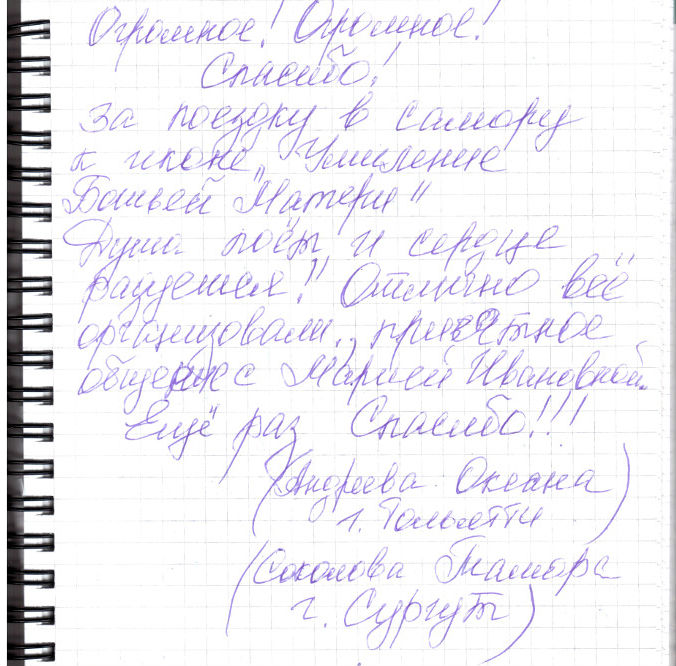 Огромное! Огромное!
Спасибо!
за поездку в самору
к иконе „Умиление
Божьей Матери"
Душа поёт и сердце
радуется! Отлично всё
организовали, приятное
общение с Марией Ивановной.
Ещё раз Спасибо!!!
(Андреева Оксана
г. Тольятти)
(Соколова Тамара
г. Сургут)